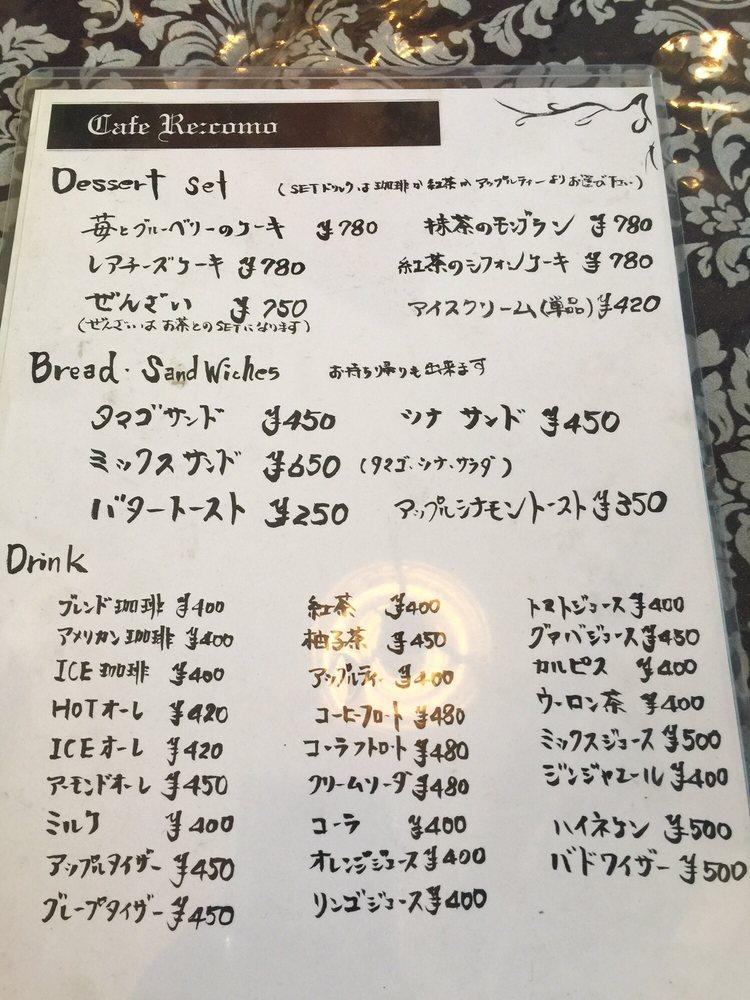 Cafe Re:como
Dessert set (SETドリンクは珈琲か紅茶かアップルティーよりお選び下さい)
苺とブルーベリーのケーキ ¥780 抹茶のモンブラン ¥780
レアチーズケーキ ¥780 紅茶のシフォンケーキ ¥780
ぜんざい ¥750 アイスクリーム(単品) ¥420
(ぜんざいはお茶とのSETになります)
Bread・Sandwiches お持ち帰りも出来ます
タマゴサンド ¥450 シナサンド ¥450
ミックスサンド ¥650 (タマゴ、シナ、サラダ)
バタートースト ¥250 アップルシナモントースト ¥350
Drink
ブレンド珈琲 ¥400 紅茶 ¥400 トマトジュース ¥400
アメリカン珈琲 ¥400 柚子茶 ¥450 グァバジュース ¥450
ICE珈琲 ¥400 アップルティー ¥400 カルピス ¥400
HOTオーレ ¥420 コーヒーフロート ¥480 ウーロン茶 ¥400
ICEオーレ ¥420 コーラフロート ¥480 ミックスジュース ¥500
アーモンドオーレ ¥450 クリームソーダ ¥480 ジンジャエール ¥400
ミルク ¥400 コーラ ¥400 ハイネケン ¥500
アップルタイザー ¥450 オレンジジュース ¥400 バドワイザー ¥500
グレープタイザー ¥450 リンゴジュース ¥400